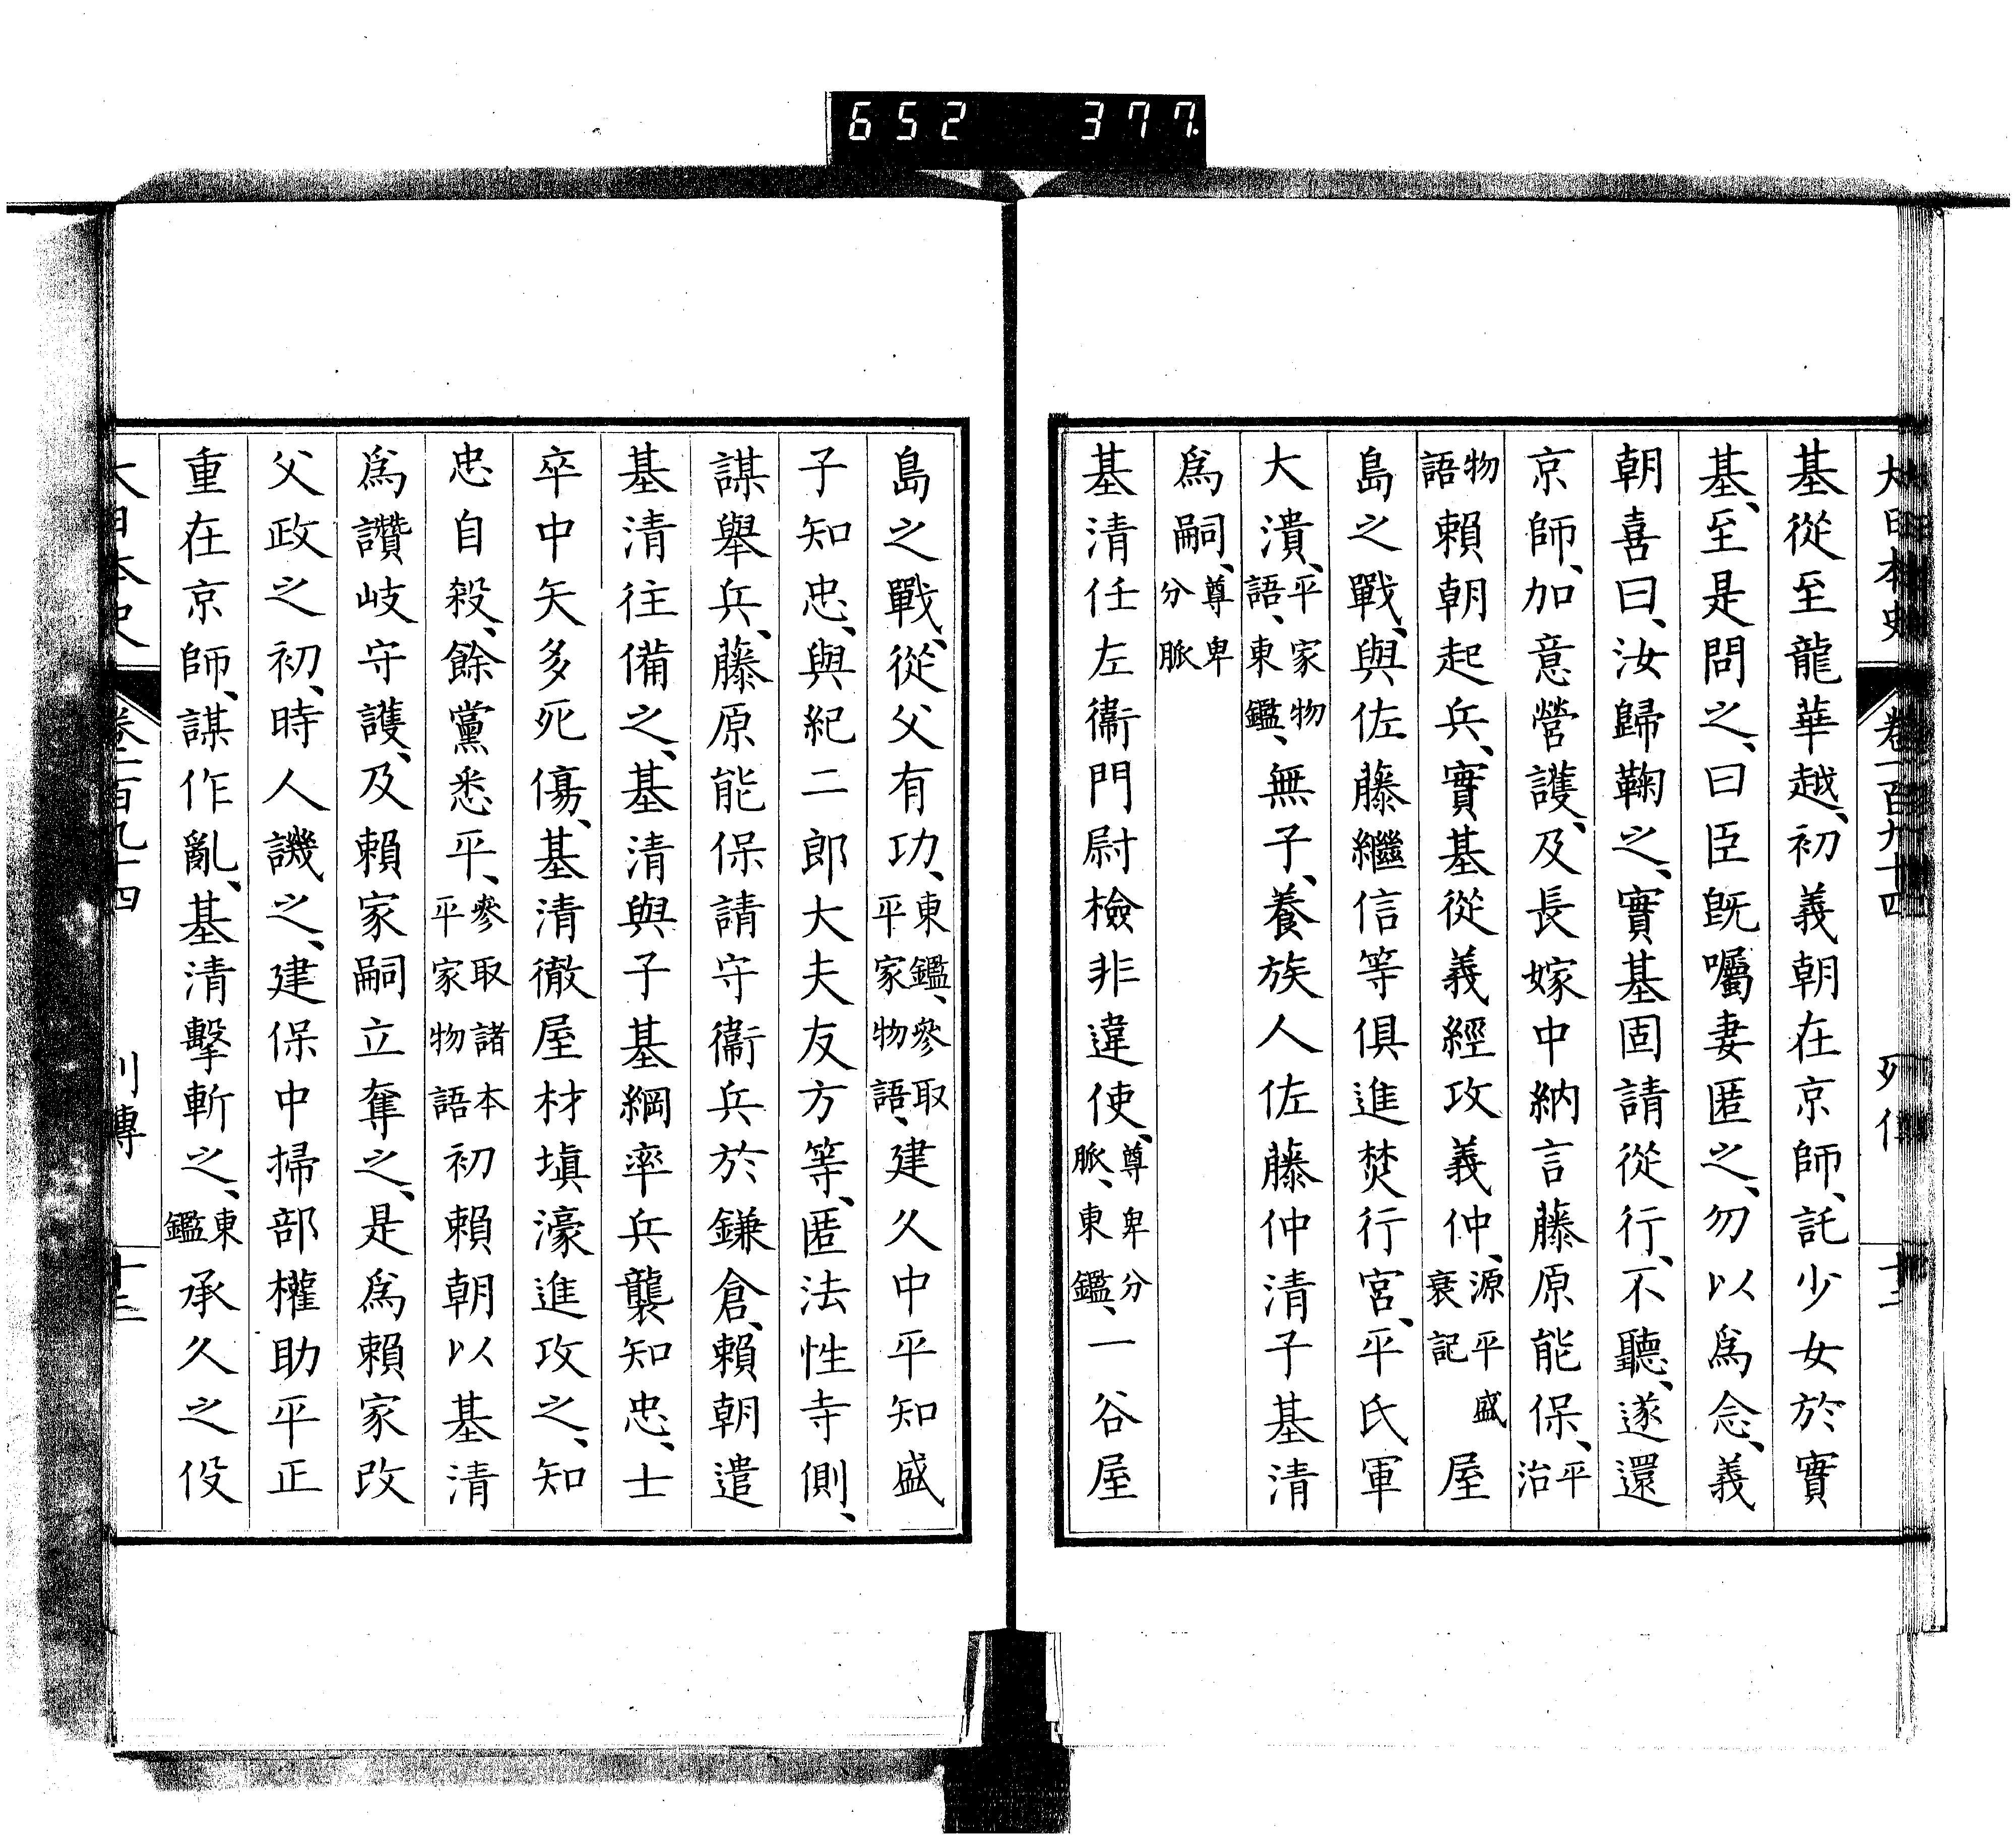 652 377
大日本史 卷一百九十四 列傳 十二
基從至龍華越、初義朝在京師、託少女於實
基、至是問之、曰臣既囑妻匿之、勿以爲念、義
朝喜曰、汝歸鞠之、實基固請從行、不聽、遂還
京師、加意營護、及長嫁中納言藤原能保、平治
物語賴朝起兵、實基從義經攻義仲、源平盛衰記屋
島之戰、與佐藤繼信等俱進焚行宮、平氏軍
大潰、平家物語、東鑑、無子、養族人佐藤仲清子基清
爲嗣、尊卑分脈
基清任左衞門尉檢非違使、尊卑分脈、東鑑、一谷屋
島之戰、從父有功、東鑑、參取平家物語、建久中平知盛
子知忠、與紀二郎大夫友方等、匿法性寺側、
謀舉兵、藤原能保請守衞兵於鎌倉、賴朝遣
基清往備之、基清與子基綱率兵襲知忠、士
卒中矢多死傷、基清徹屋材塡濠進攻之、知
忠自殺、餘黨悉平、參取諸本平家物語初賴朝以基清
爲讚岐守護、及賴家嗣立奪之、是爲賴家改
父政之初、時人譏之、建保中掃部權助平正
重在京師、謀作亂、基清擊斬之、東鑑承久之役
大日本史 卷一百九十四 列傳 十三